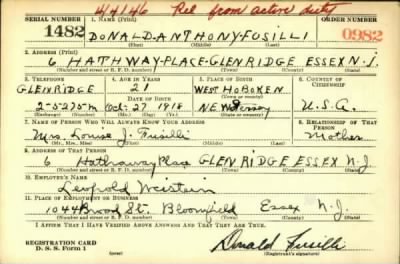 4/4/46 Rel from active duty
SERIAL NUMBER 1. NAME (Print) ORDER NUMBER
1482 DONALD-ANTHONY-FUSILLI 0982
(First) (Middle) (Last)
2. ADDRESS (Print)
6 HATHWAY-PLACE-GLENRIDGE ESSEX N.J.
(Number and street or R. F. D. number) (Town) (County) (State)
3. TELEPHONE 4. AGE IN YEARS 5. PLACE OF BIRTH 6. COUNTRY OF CITIZENSHIP
GLENRIDGE 21 WEST HOBOKEN
DATE OF BIRTH (Town or county)
2-5275M Oct. 27 1918 NEW Jersey U.S.A.
(Exchange) (Number) (Mo.) (Day) (Yr.) (State or country)
7. NAME OF PERSON WHO WILL ALWAYS KNOW YOUR ADDRESS 8. RELATIONSHIP OF THAT PERSON
Mrs. Louise J. Fusilli Mother
(Mr., Mrs., Miss) (First) (Middle) (Last)
9. ADDRESS OF THAT PERSON
6 Hathaway Place GLEN RIDGE ESSEX N-J
(Number and street or R. F. D. number) (Town) (County) (State)
10. EMPLOYER'S NAME
Leopold Weistein
11. PLACE OF EMPLOYMENT OR BUSINESS
1044 Broad St. Bloomfield Essex N.J.
(Number and street or R. F. D. number) (Town) (County) (State)
I AFFIRM THAT I HAVE VERIFIED ABOVE ANSWERS AND THAT THEY ARE TRUE.
REGISTRATION CARD
D. S. S. Form 1 (over) Donald Fusilli
(Registrant's signature)